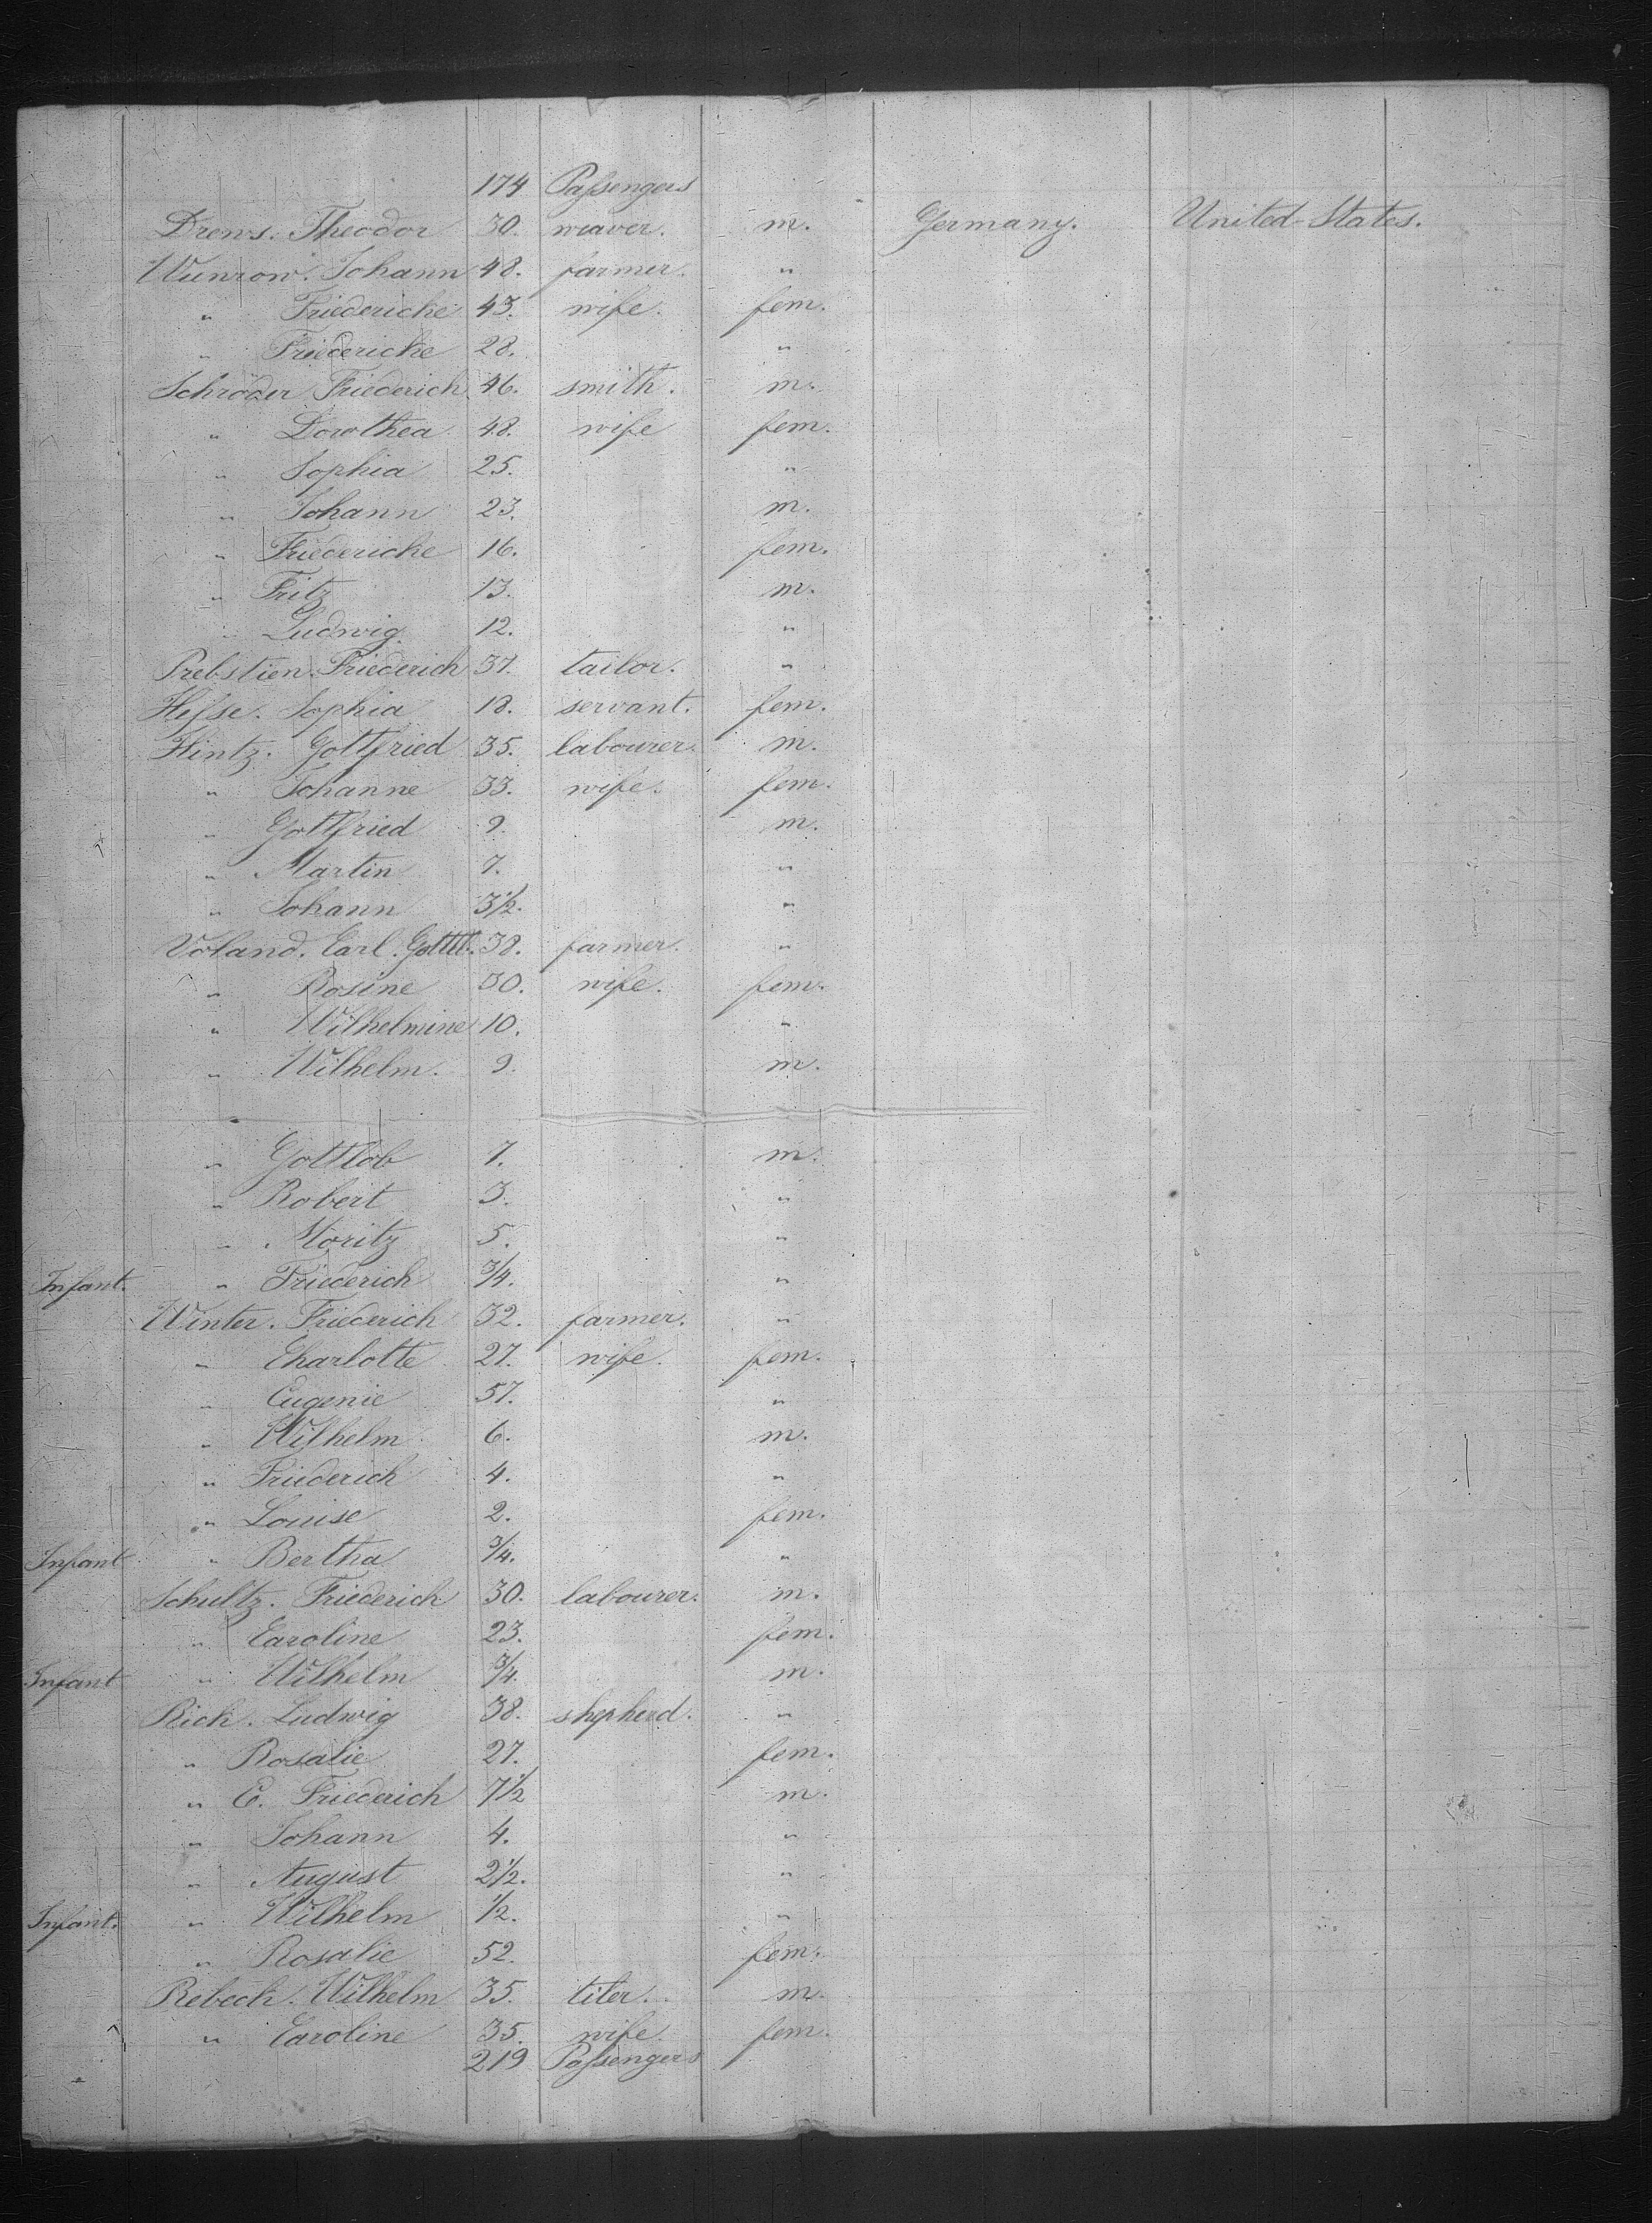 174 Passengers
Drews. Theodor 30. weaver. m. Germany. United-States.
Wunrow. Johann 48. farmer. "
" Friedericke 43. wife. fem.
" Friedericke 28. "
Schröder Friederich 46. smith. m.
" Dorothea 48. wife fem.
" Sophia 25. "
" Johann 23. m.
" Friedericke 16. fem.
" Fritz 13. m.
" Ludwig. 12. "
Prebstien. Friederich 37. tailor. "
Hesse. Sophia 18. servant. fem.
Hintz. Gottfried 35. labourer. m.
" Johanne 33. wife. fem.
" Gottfried 9. m.
" Martin 7. "
" Johann 3½. "
Voland. Carl. Gottl. 38. farmer. "
" Rosine 30. wife. fem.
" Wilhelmine 10. "
" Wilhelm. 9. m.
" Gottlob 7. m.
" Robert 3. "
" Moritz 5. "
Infant. " Friederich ¾. "
Winter. Friederich 32. farmer. "
" Charlotte 27. wife. fem.
" Eugenie 57. "
" Wilhelm 6. m.
" Friederich 4. "
" Louise 2. fem.
Infant " Bertha ¾. "
Schultz. Friederich 30. labourer. m.
" Caroline 23. fem.
Infant " Wilhelm ¾. m.
Rich. Ludwig 38. shepherd. "
" Rosalie 27. fem.
" C. Friederich 7½ m.
" Johann 4. "
" August 2½. "
Infant. " Wilhelm ½. "
" Rosalie 52. fem.
Rebeck. Wilhelm 35. titer. m.
" Caroline 35. wife. fem.
219 Passengers